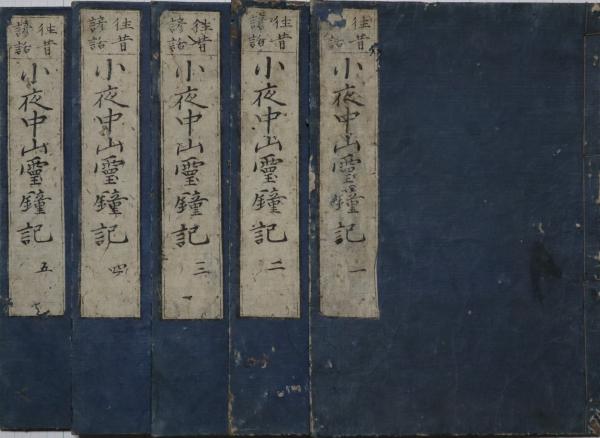 往昔
諺話
小夜中山霊鐘記
一
往昔
諺話
小夜中山霊鐘記
二
往昔
諺話
小夜中山霊鐘記
三
往昔
諺話
小夜中山霊鐘記
四
往昔
諺話
小夜中山霊鐘記
五